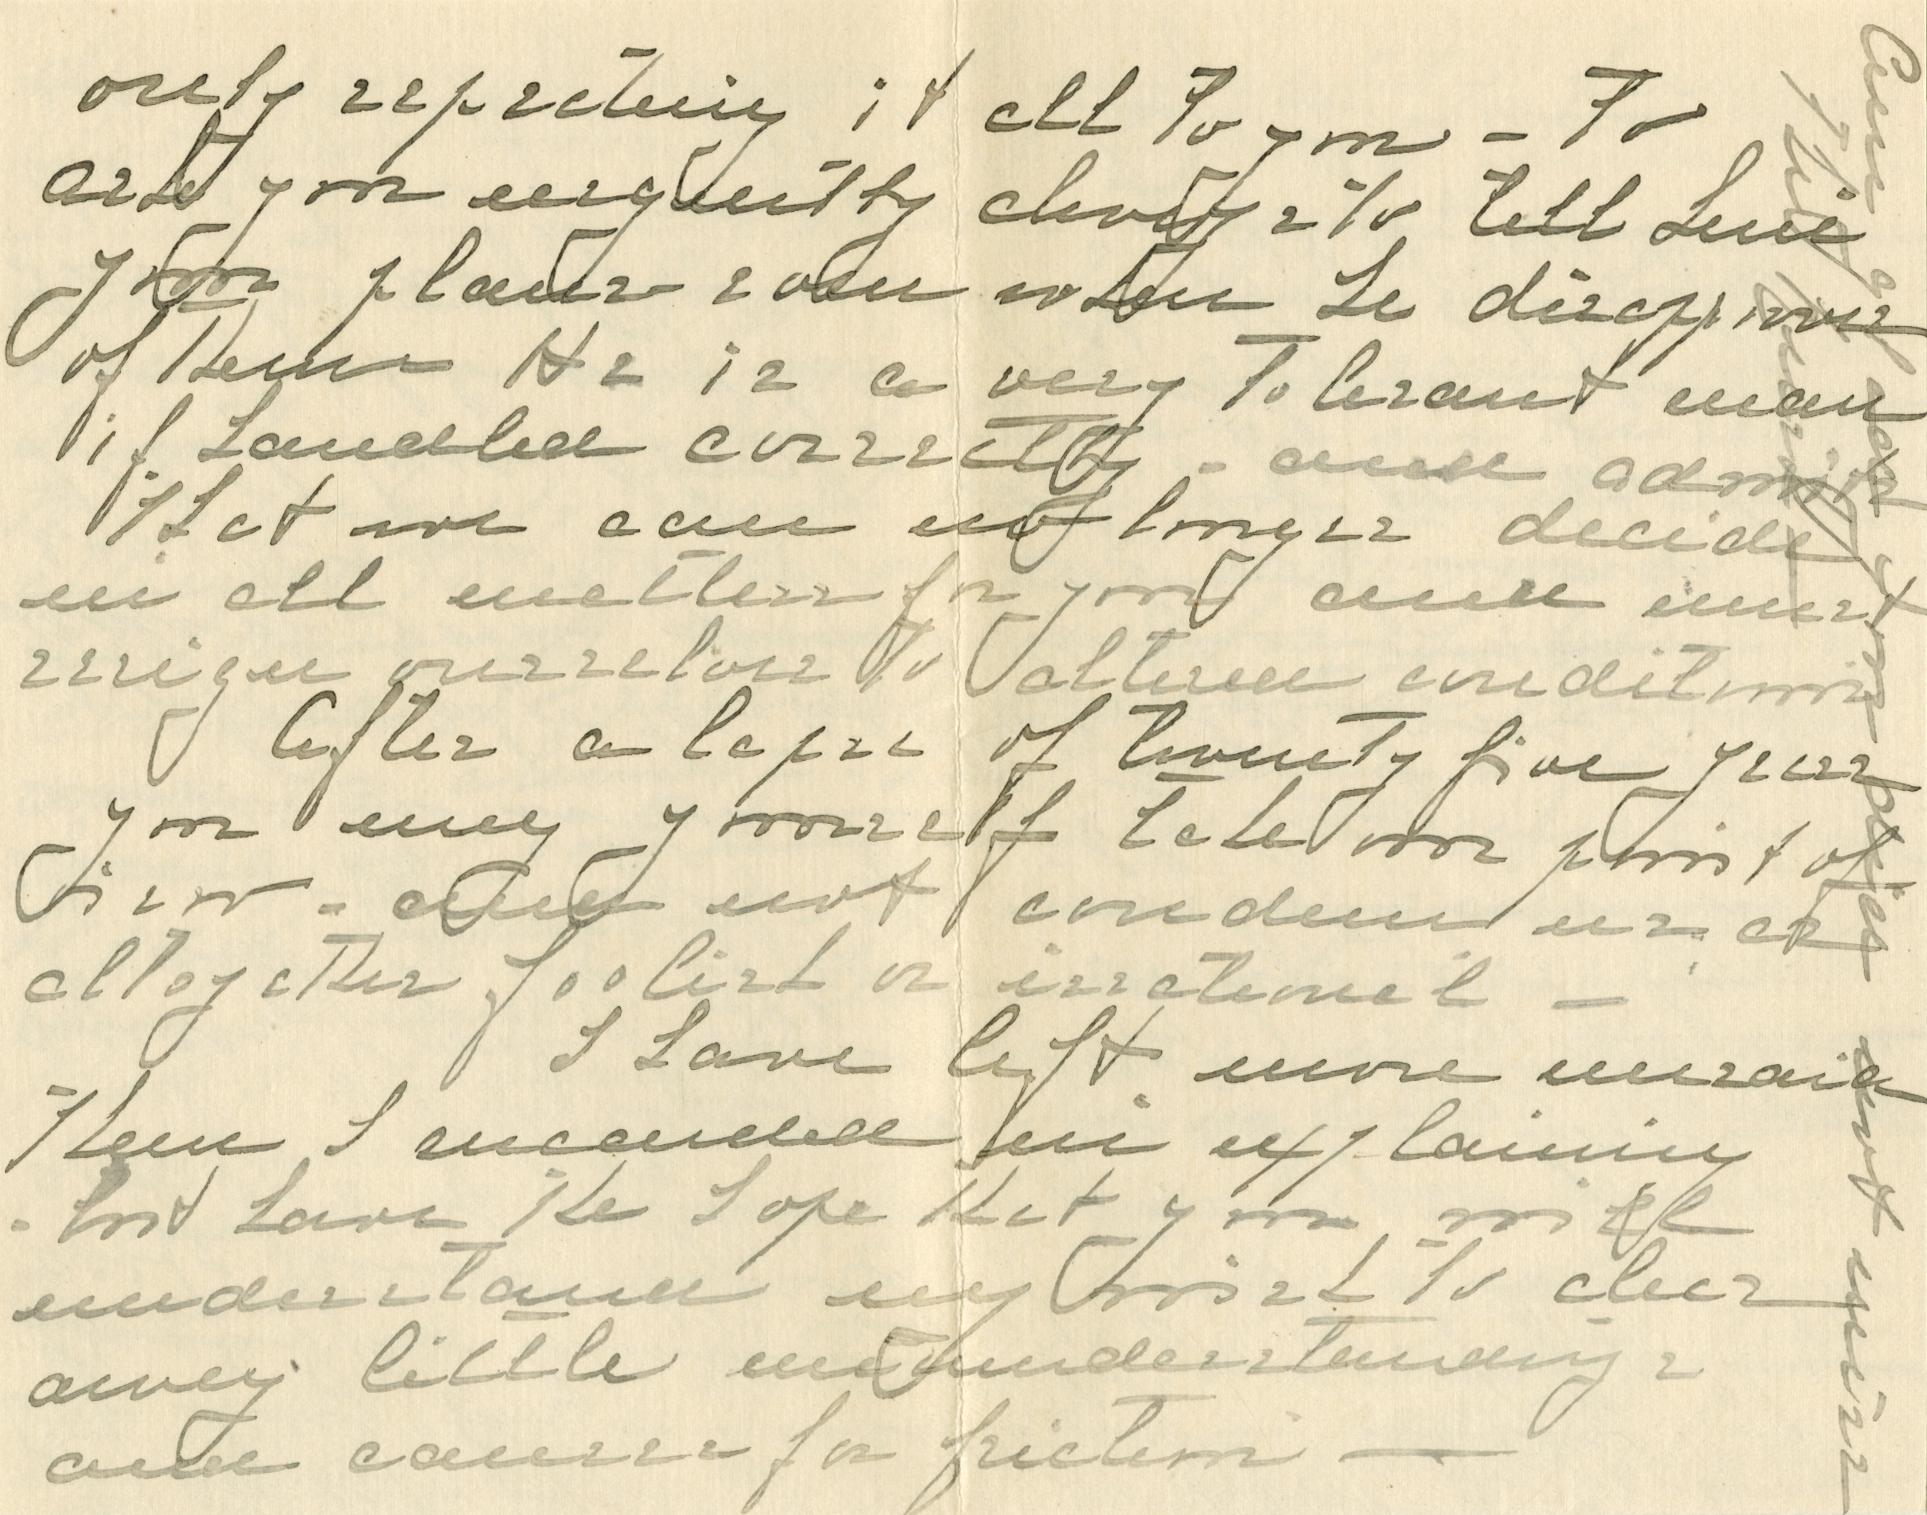 only repeating it all to you - To
ask you urgently always to tell him
your plans even when he disapproves
of them He is a very tolerant man
if handled correctly - and admits
that we can no longer decide
in all matters for you and must
resign ourselves to altered conditions
After a lapse of twenty five years
you may yourself take our point of
view - and not condemn us as
altogether foolish or irrational -
I have left more unsaid
than I succeeded in explaining
- but have the hope that you will
understand my wish to clear
away little misunderstandings
and causes for friction —
your not mine